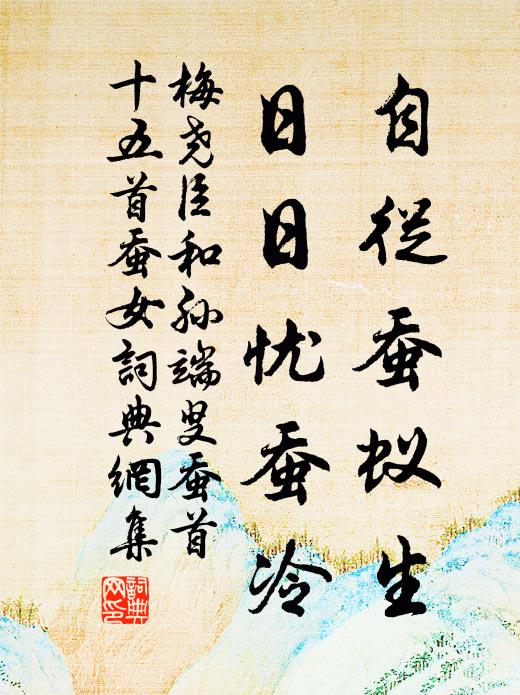 自從蚕蚁生
日日忧蚕冷
梅尧臣和孙端叟蚕首
十五首蚕女詞典網集
詞典网印